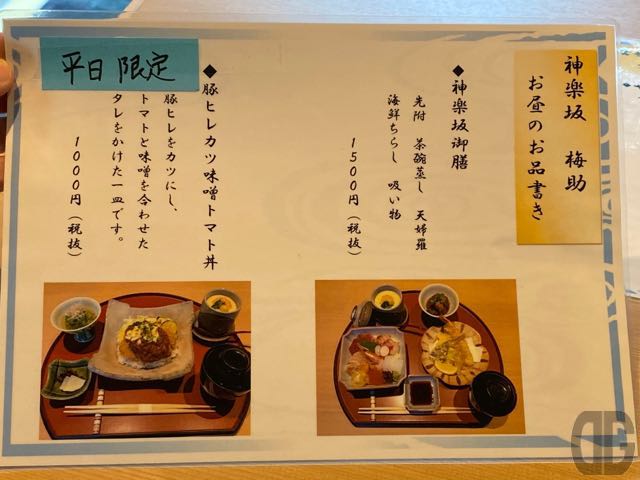 神楽坂 梅助
お昼のお品書き
◆神楽坂御膳
先附 茶碗蒸し 天婦羅
海鮮ちらし 吸い物
1500円(税抜)
平日限定
◆豚ヒレカツ味噌トマト丼
豚ヒレをカツにし、
トマトと味噌を合わせた
タレをかけた一皿です。
1000円(税抜)